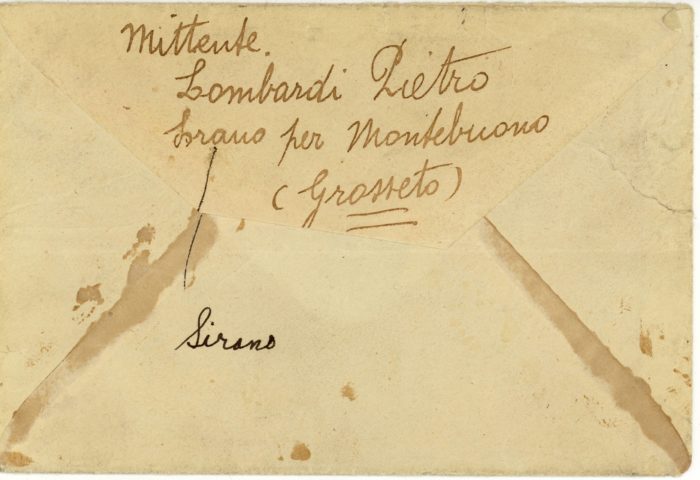 Mittente.
Lombardi Pietro
per Montebuono
(Grosseto)
Sirano